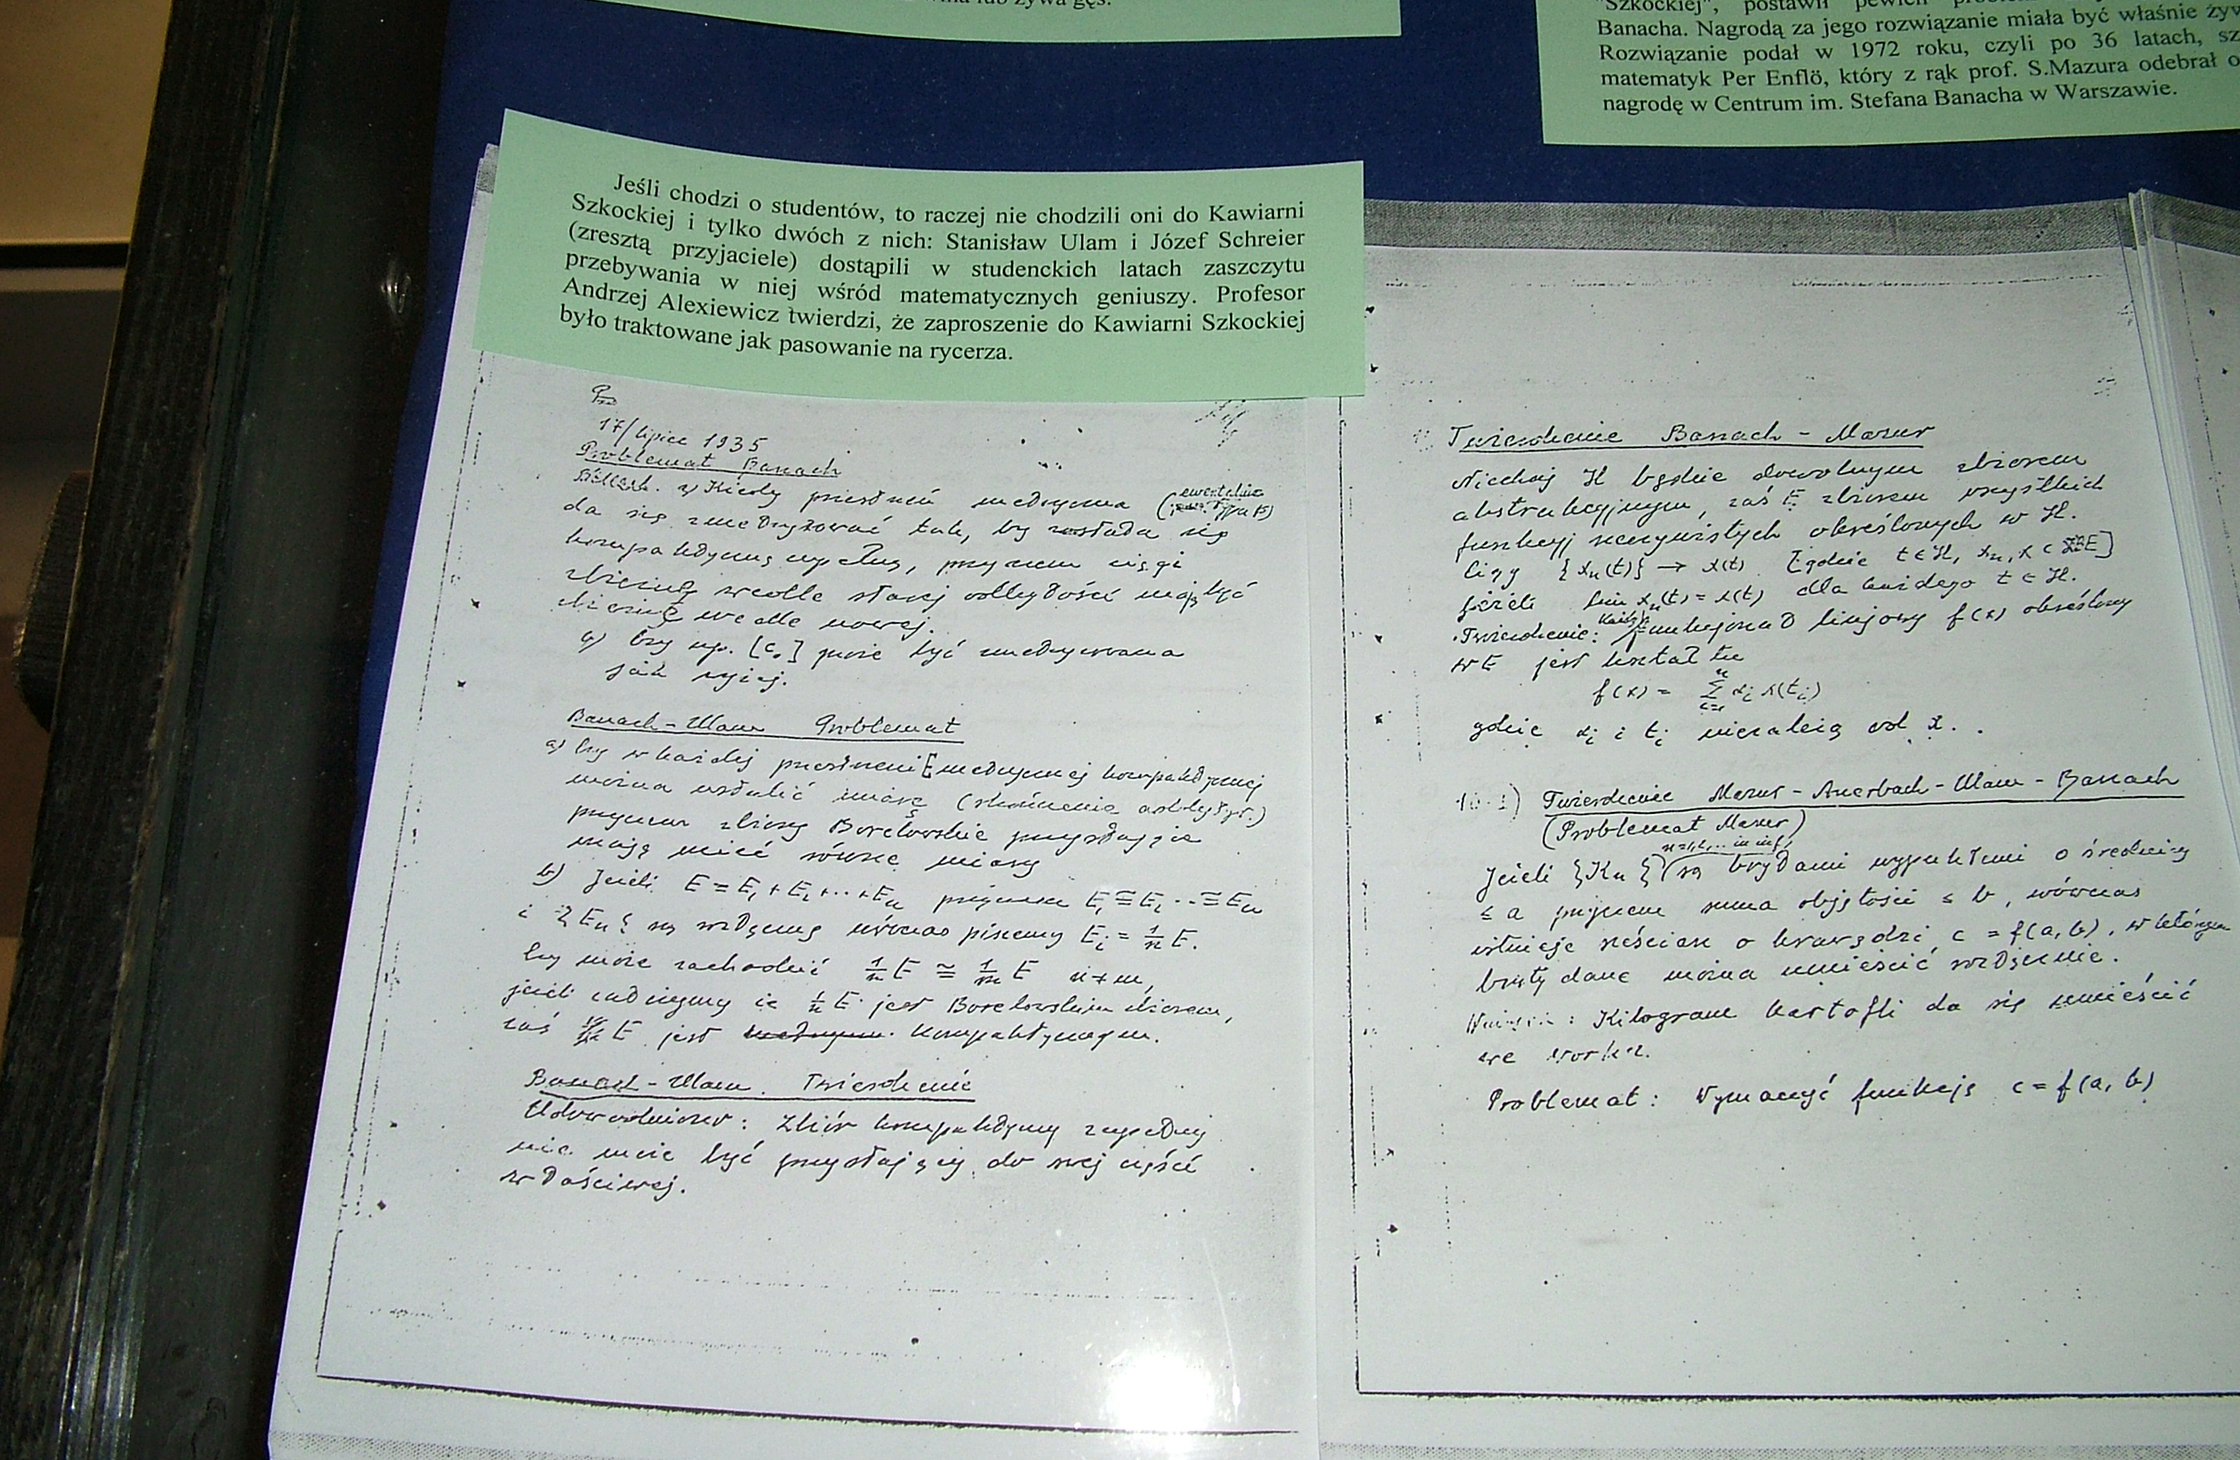 żywa gęś.
"Szkockiej", postawił pewien
Banacha. Nagrodą za jego rozwiązanie miała być właśnie
Rozwiązanie podał w 1972 roku, czyli po 36 latach,
matematyk Per Enflö, który z rąk prof. S.Mazura odebrał
nagrodę w Centrum im. Stefana Banacha w Warszawie.
Jeśli chodzi o studentów, to raczej nie chodzili oni do Kawiarni
Szkockiej i tylko dwóch z nich: Stanisław Ulam i Józef Schreier
(zresztą przyjaciele) dostąpili w studenckich latach zaszczytu
przebywania w niej wśród matematycznych geniuszy. Profesor
Andrzej Alexiewicz twierdzi, że zaproszenie do Kawiarni Szkockiej
było traktowane jak pasowanie na rycerza.
17/lipiec 1935
Problemat Banach
Kiedy przestrzeń metryczna (ewentualnie typu B)
da się zmetryzować tak, by została się
kompaktyczną zupełną, przyczem ciągi
zbieżne wedle starej odległości mają być
zbieżne wedle nowej.
a) Czy np. [c₀] może być zmetryzowana
jak wyżej.
Banach - Ulam Problemat
a) Czy w każdej przestrzeni E metrycznej kompaktycznej
można ustalić miarę (skończenie addytyw.)
przyczem zbiory Borelowskie przystające
mają mieć równe miary
b) Jeżeli E = E₁ + E₂ + .. + Eₙ przyczem E₁ ≅ E₂ .. ≅ Eₙ
i {Eₙ} są rozłączne wówczas piszemy Eᵢ = 1/n E.
Czy może zachodzić 1/n E ≅ 1/m E n ≠ m,
jeżeli żądamy że 1/n E jest Borelowskim zbiorem,
zaś E jest kompaktycznym.
Banach - Ulam. Twierdzenie
Udowodniono: Zbiór kompaktyczny zupełny
nie może być przystający do swej części
właściwej.
Twierdzenie Banach - Mazur
Niechaj H będzie dowolnym zbiorem
abstrakcyjnym, zaś E zbiorem wszystkich
funkcyj rzeczywistych określonych w H.
Ciąg {xₙ(t)} → x(t) [gdzie t ∈ H, xₙ, x ⊂ E]
jeżeli lim xₙ(t) = x(t) dla każdego t ∈ H.
Twierdzenie: Każdy funkcjonał linjowy f(x) określony
w E jest kształtu
f(x) = Σ αᵢ x(tᵢ)
gdzie αᵢ i tᵢ niezależą od x.
10.1) Twierdzenie Mazur - Auerbach - Ulam - Banach
(Problemat Mazur)
Jeżeli {Kₙ} n=1,2,.. in inf. są bryłami wypukłemi o średnicy
≤ a przyczem suma objętości ≤ b, wówczas
istnieje sześcian o krawędzi c = f(a, b), w którym
bryły dane można umieścić rozłącznie.
Wniosek: Kilogram kartofli da się umieścić
we worku.
Problemat: Wyznaczyć funkcję c = f(a, b)